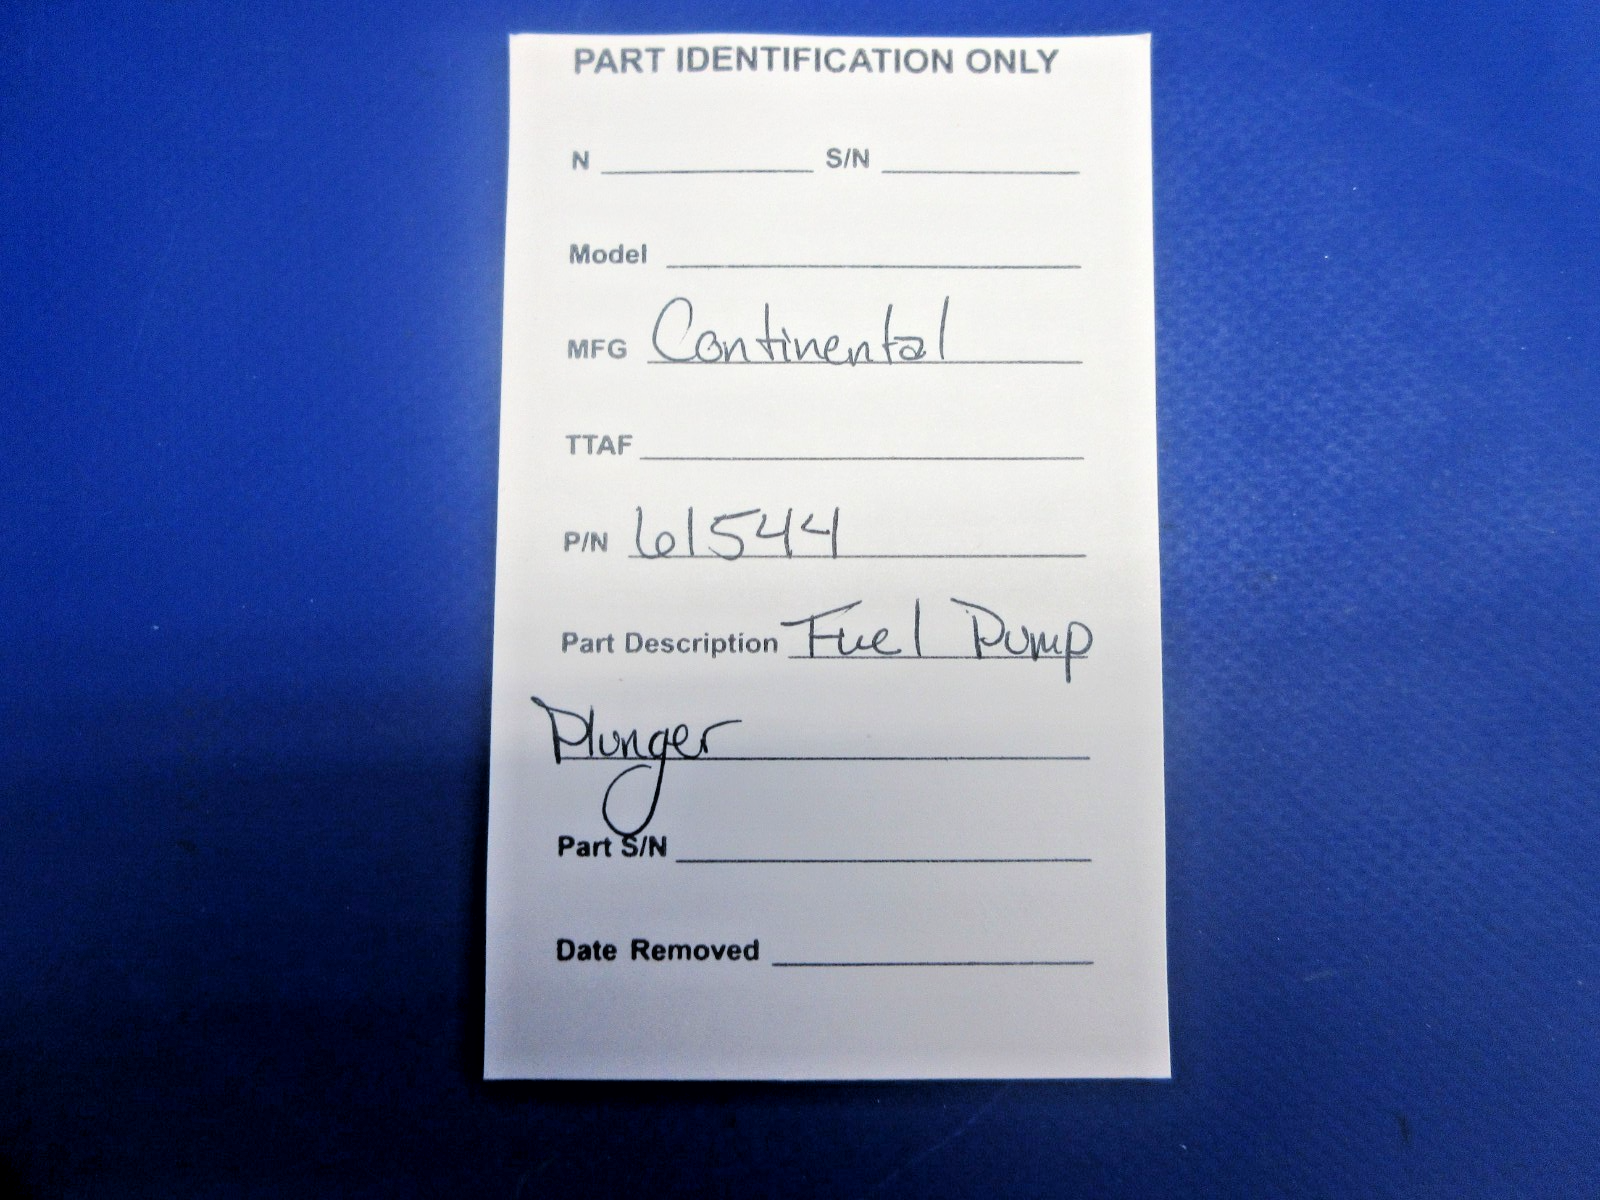 PART IDENTIFICATION ONLY
N S/N
Model
MFG Continental
TTAF
P/N 61544
Part Description Fuel Pump
Plunger
Part S/N
Date Removed